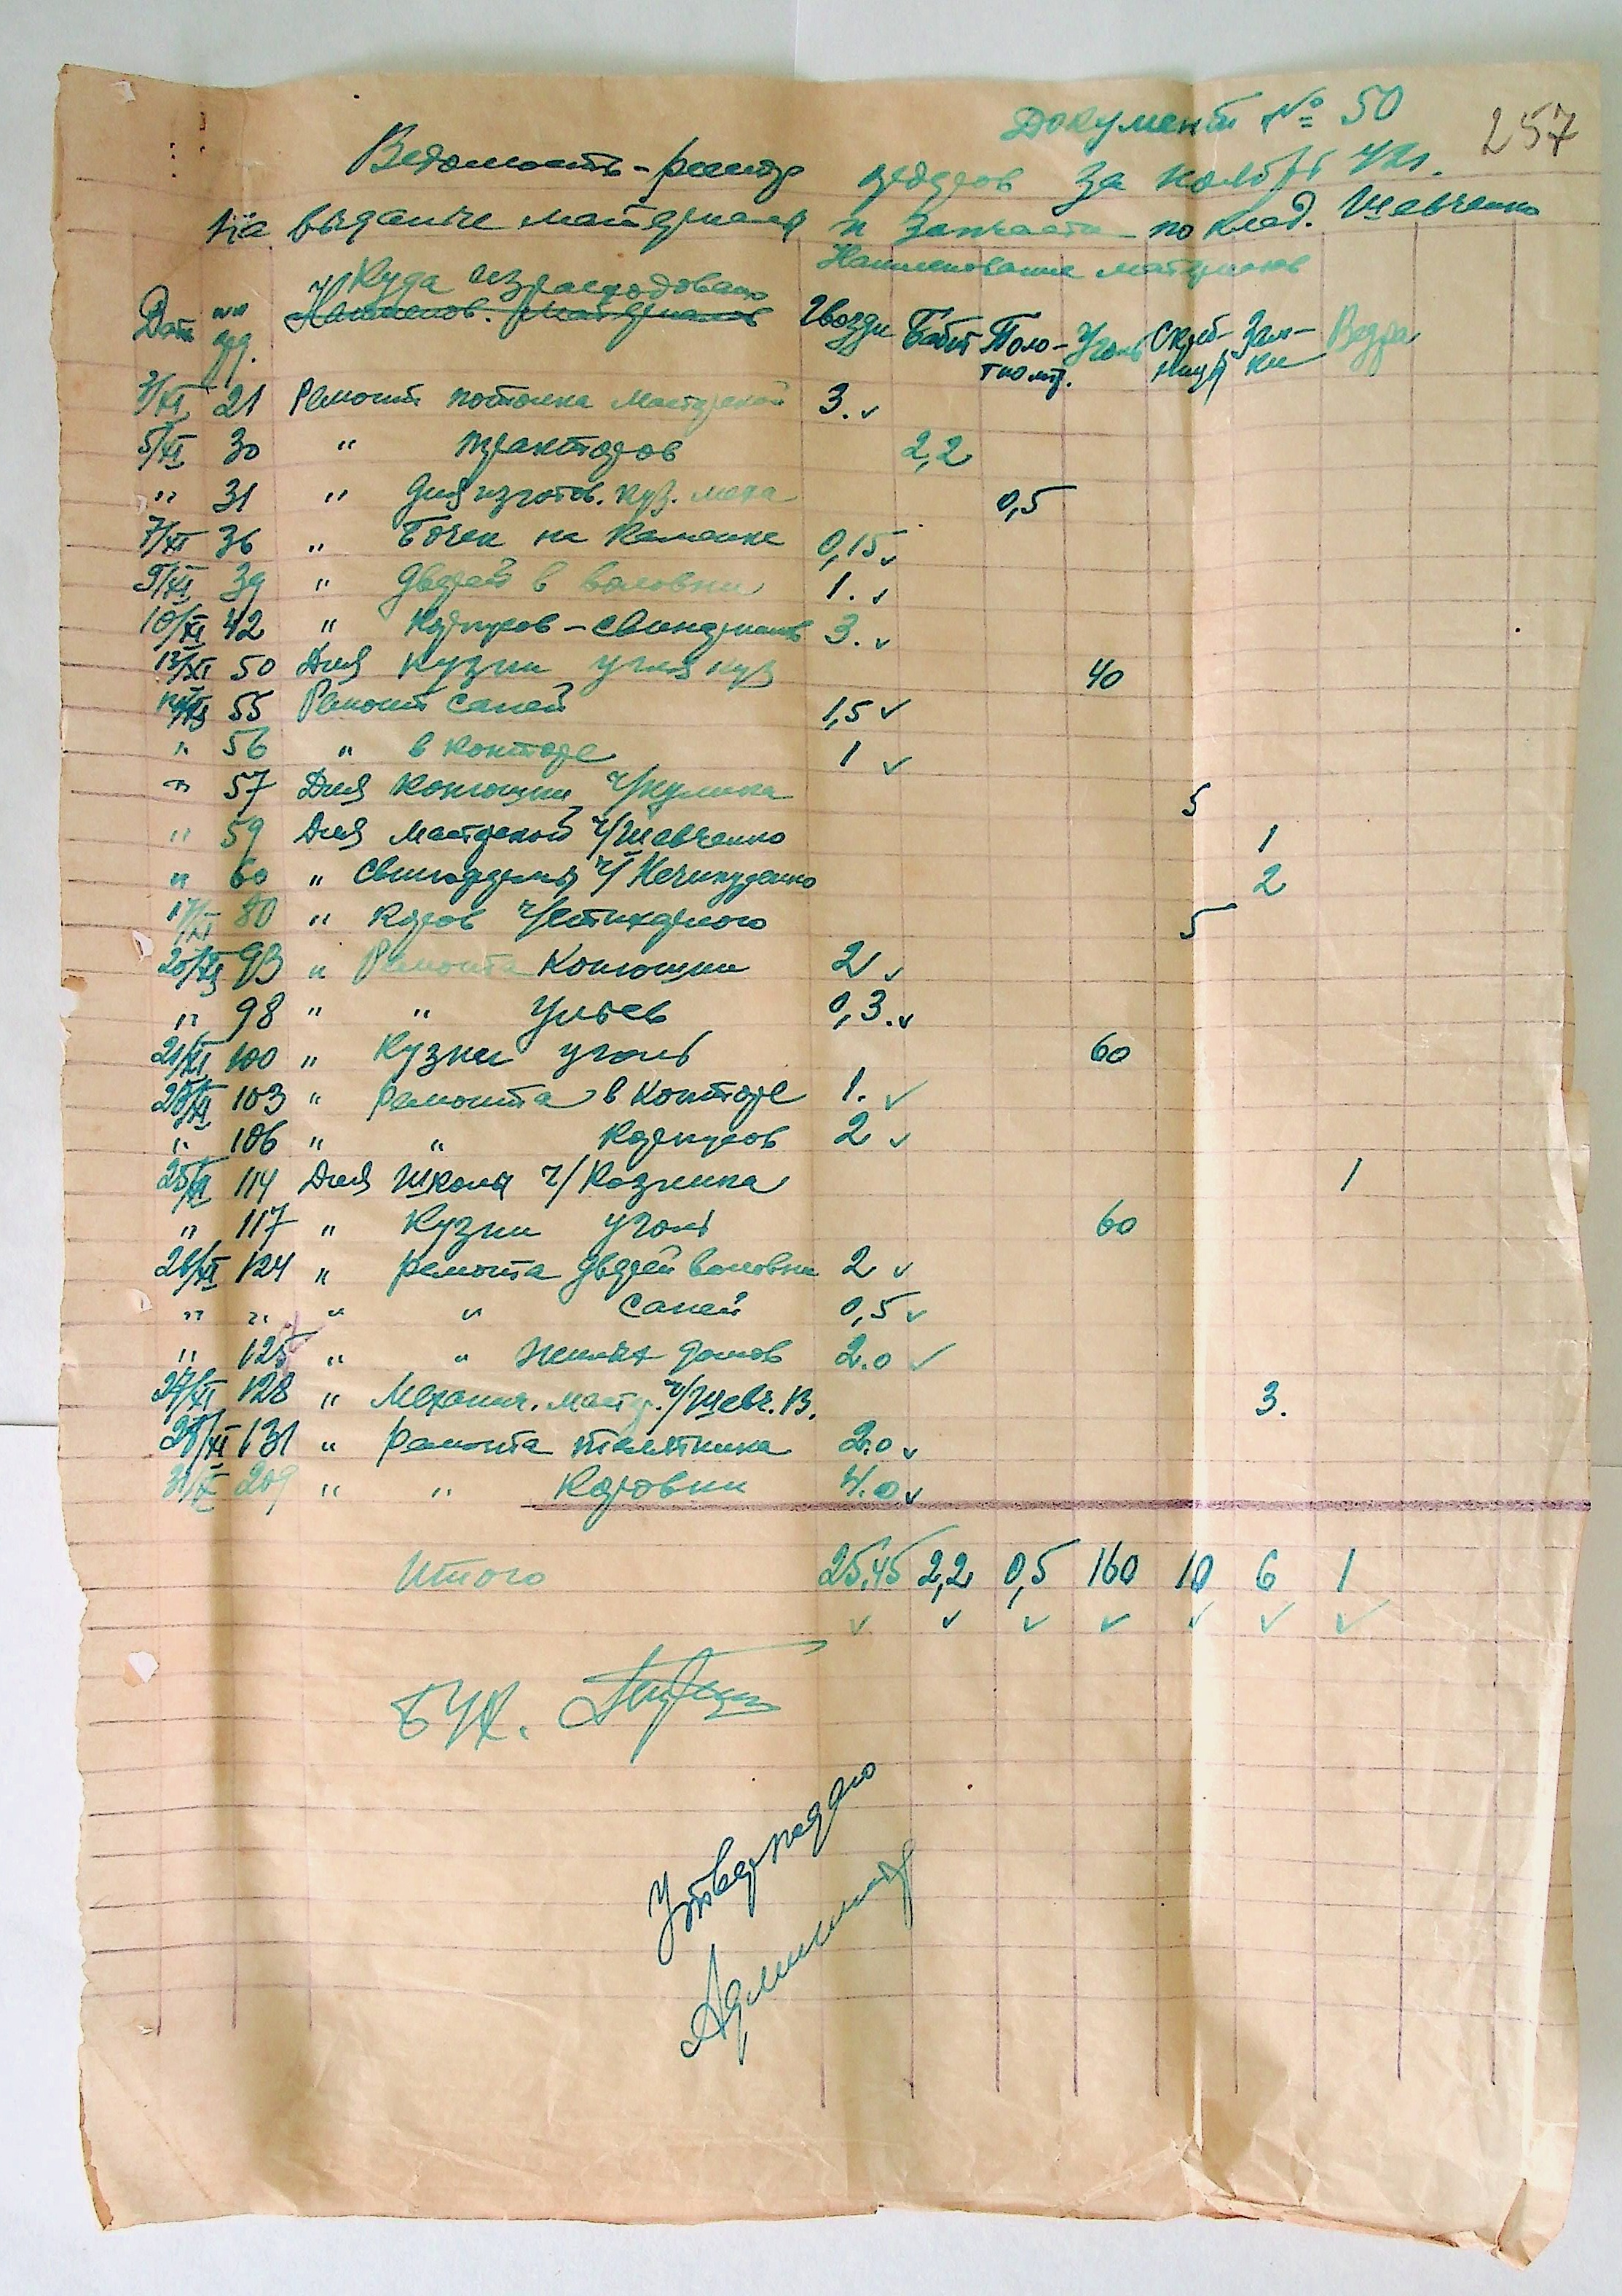 Документ № 50
257
Ведомость-реестр ордеров за ноябрь 42г.
на выдание материалы и запчасти по клад. Шевченко
Наименование материалов
Куда израсходовано
Дата №№ орд. Наименов. материалов Гвозди Бабит Поло-тно мт. Уголь Скреб-ниц Зам-ки Ведра
3/XI 21 Ремонт потолка мастерской 3.
5/XI 30 " тракторов 2,2
" 31 " для изготов. куз. меха 0,5
7/XI 36 " Бочек на Каменке 0,15
9/XI 39 " дверей в воловни 1.
10/XI 42 " корпусов-свинарников 3.
13/XI 50 Для кузни угля куз 40
14/XI 55 Ремонт саней 1,5
" 56 " в конторе 1
" 57 Для конюшни ч/кулика 5
" 59 Для мастерской ч/Шевченко 1
" 60 " свинарника ч/Нечипуренко 2
17/XI 80 " коров ч/Стихарного 5
20/XI 93 " Ремонта конюшни 2
" 98 " " ульев 0,3.
21/XI 100 " Кузни уголь 60
103 " ремонта в конторе 1.
" 106 " " корпусов 2
25/XI 114 Для школы ч/ Козлика 1
" 117 " Кузни уголь 60
26/XI 124 " ремонта дверей воловни 2
" " " " саней 0,5
" 125 " " жилых домов 2.0
27/XI 128 " Механич. мастер. ч/Шевч. В. 3.
131 " ремонта телятника 2.0
209 " " Коровни 4.0
Итого 25,45 2,2 0,5 160 10 6 1
БУХ.
Утверждаю
Администр